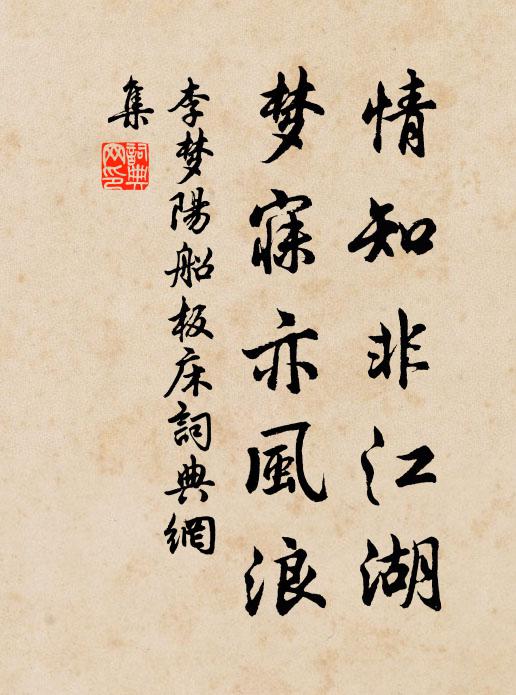 情知非江湖
梦寐亦風浪
李梦陽船板床詞典網
集
詞典網印